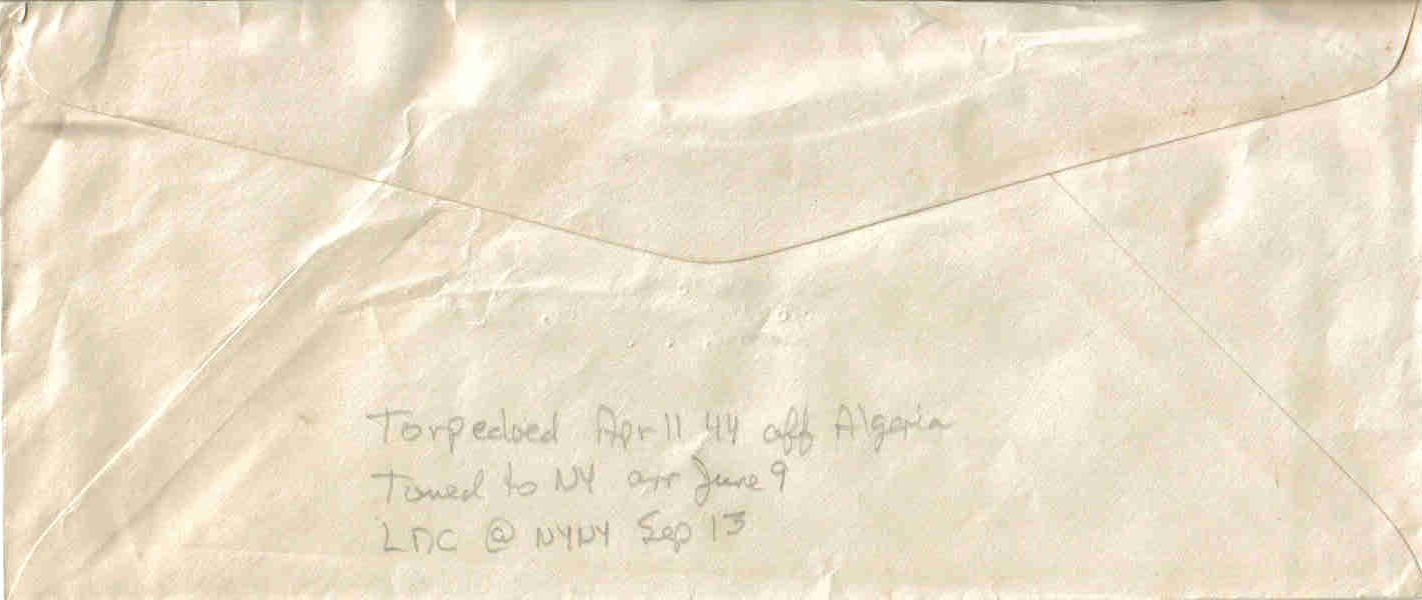 Torpedoed Apr 11 44 off Algeria
Towed to NY arr June 9
LDC @ NYNY Sep 13